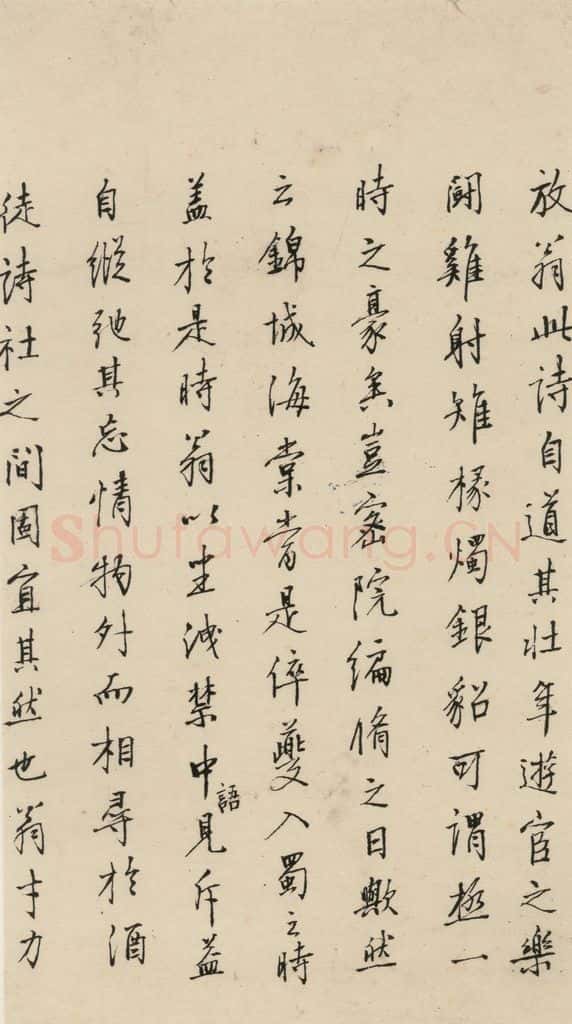 放翁此詩自道其壯年遊官之樂
鬪雞射雉椽燭銀貂可謂極一
時之豪矣豈密院編脩之日歟然
云錦城海棠嘗是倅夔入蜀之時
盖於是時翁以坐洩禁中語見斥益
自縱弛其忘情物外而相尋於酒
徒詩社之間固宜其然也翁才力
Shufawang.CN